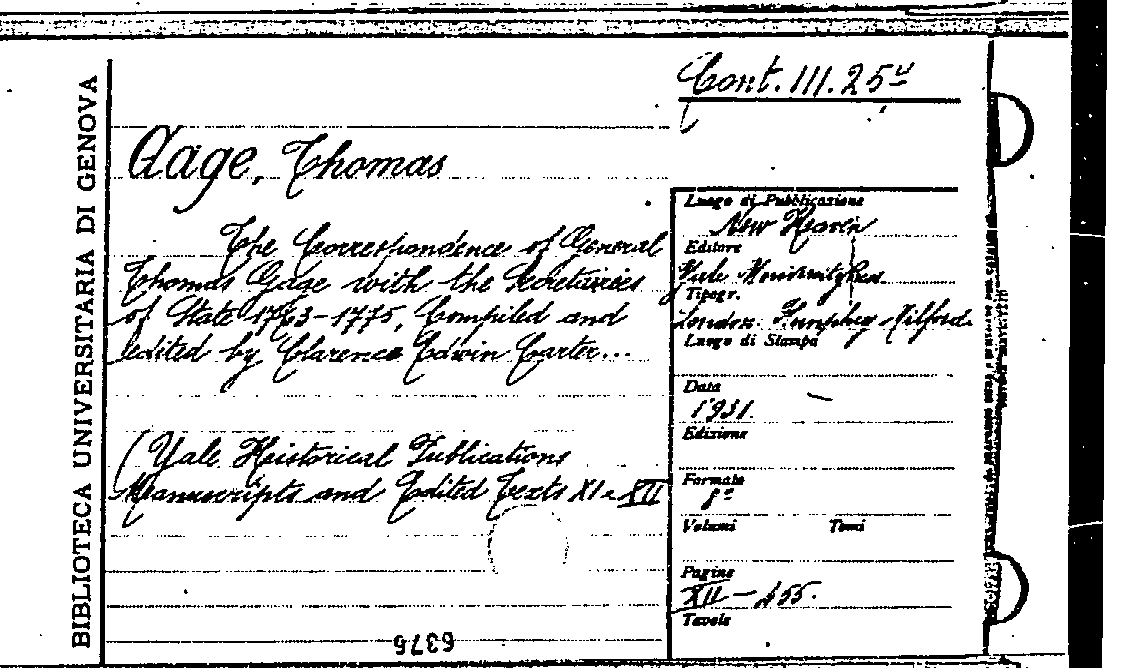 BIBLIOTECA UNIVERSITARIA DI GENOVA
Cont. III. 25
Gage, Thomas
The Correspondence of General
Thomas Gage with the Secretaries
of State 1763-1775, Compiled and
edited by Clarence Edwin Carter...
(Yale Historical Publications
Manuscripts and Edited Texts XI - XII
Luogo di Pubblicazione
New Heaven
Editore
Yale
Tipogr.
London. Humphrey Milford.
Luogo di Stampa
Data
1931.
Edizione
Formato
8°
Volumi Tomi
Pagine
XII -
Tavole
6376